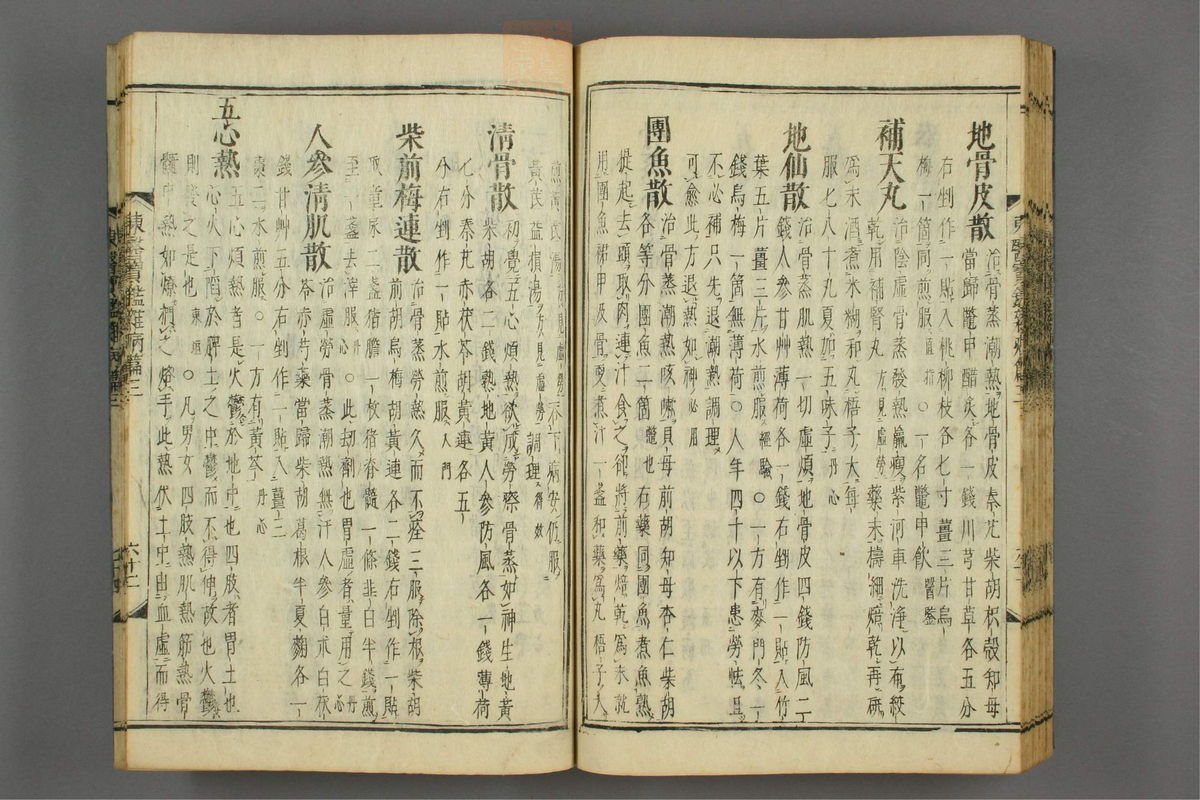 地骨皮散治骨蒸潮熱地骨皮秦艽柴胡枳殼知母
當歸鼈甲醋炙各一錢川芎甘草各五分
右剉作一貼入桃柳枝各七寸薑三片烏
梅一箇同煎服直指○一名鼈甲飮醫鑒
補天丸治陰虛骨蒸發熱羸瘦紫河車洗淨以布絞
乾用補腎丸方見虛勞藥末擣細焙乾再硏
爲末酒煮米糊和丸梧子大每
服七八十丸夏加五味子丹心
地仙散治骨蒸肌熱一切虛煩地骨皮四錢防風二
錢人參甘艸薄荷各一錢右剉作一貼入竹
葉五片薑三片水煎服經驗○一方有麥門冬一
錢烏梅一箇無薄荷○人年四十以下患勞怯且
不必補只先退潮熱調理
可愈此方退熱如神必用
團魚散治骨蒸潮熱咳嗽貝母前胡知母杏仁柴胡
各等分團魚二箇鼈也右藥同團魚煮魚熟
提起去頭取肉連汁食之却將前藥焙乾爲末就
用團魚裙甲及骨更煮汁一盞和藥爲丸梧子大
煎黃芪湯方見虛勞下病安仍服
黃芪益損湯方見虛勞調理得效
淸骨散初覺五心煩熱欲成勞瘵骨蒸如神生地黃
柴胡各二錢熟地黃人參防風各一錢薄荷
七分秦艽赤茯苓胡黃連各五
分右剉作一貼水煎服入門
柴前梅連散治骨蒸勞熱久而不痊三服除根柴胡
前胡烏梅胡黃連各二錢右剉作一貼
取童尿二盞猪膽一枚猪脊髓一條韭白半錢煎
至一盞去滓服丹心○此劫劑也胃虛者量用之丹心
人參淸肌散治虛勞骨蒸潮熱無汗人參白朮白茯
苓赤芍藥當歸柴胡葛根半夏麴各一
錢甘艸五分右剉作一貼入薑三
棗二水煎服○一方有黃芩丹心
五心熱五心煩熱者是火鬱於地中也四肢者脾土也
心火下陷於脾土之中鬱而不得伸故也火鬱
則發之是也東垣○凡男女四肢熱肌熱筋熱骨
髓中熱如燎捫之烙手此熱伏土中由血虛而得
東醫寶鑑雜病篇三
六十二